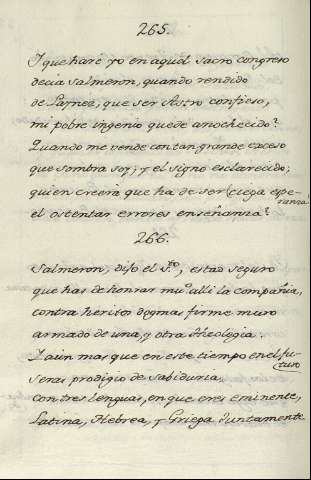 265.
Y que haré yo en aquel sacro congreso
decia Salmeron, quando rendido
de Laynez, que ser Astro confieso,
mi pobre ingenio quede anochecido?
Quando me vende con tan grande exceso
que sombra soy, y el signo esclarecido,
quien creerà que ha de ser (ciega espe-
ranza
el ostentar errores enseñanza?
266.
Salmeron, dijo el Sto, estad seguro
que has de honrar mu.º alli la compañia,
contra herejes dogmas firme muro
armado de una, y otra theologia.
Y aun mas que en este tiempo en el fu-
turo
seras prodigio de sabiduria,
con tres lenguas, en que eres eminente,
Latina, Hebrea, y Griega juntamente